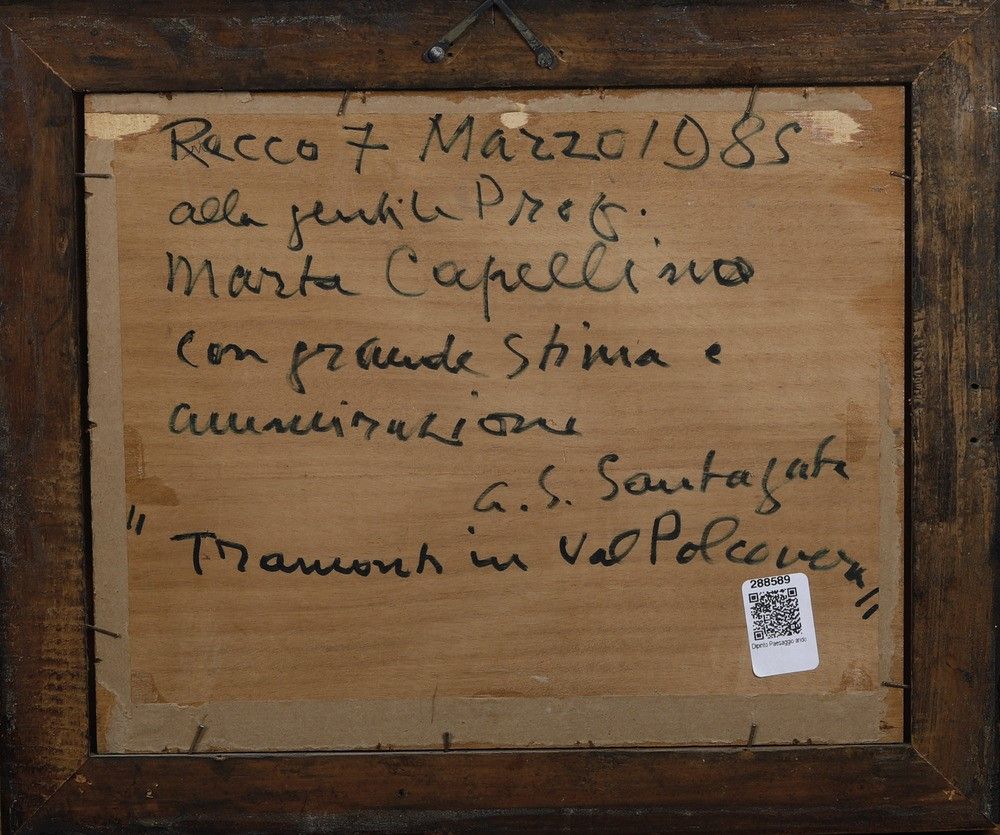 Recco 7 Marzo 1985
alla gentile Prof.
Marta Capellino
con grande stima e
ammirazione
G. S. Santagata
"Tramonti in Val Polcevera"
288589
Dipinto Paesaggio